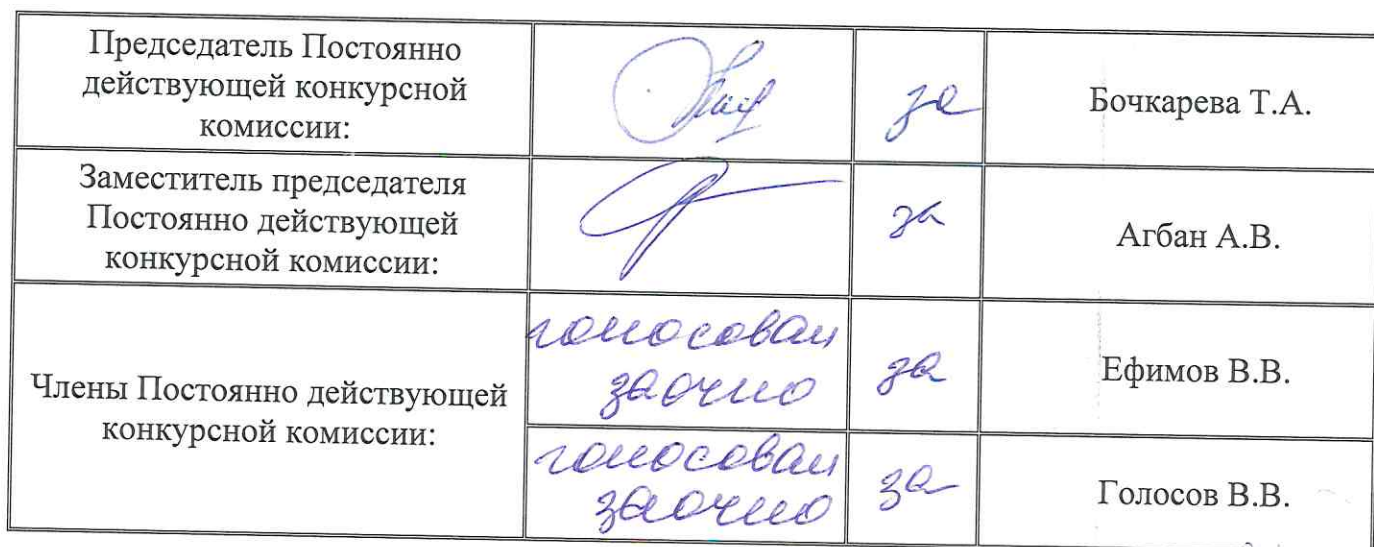 Председатель Постоянно
действующей конкурсной
комиссии:
за
Бочкарева Т.А.
Заместитель председателя
Постоянно действующей
конкурсной комиссии:
за
Агбан А.В.
Члены Постоянно действующей
конкурсной комиссии:
голосовал
заочно
за
Ефимов В.В.
голосовал
заочно
за
Голосов В.В.